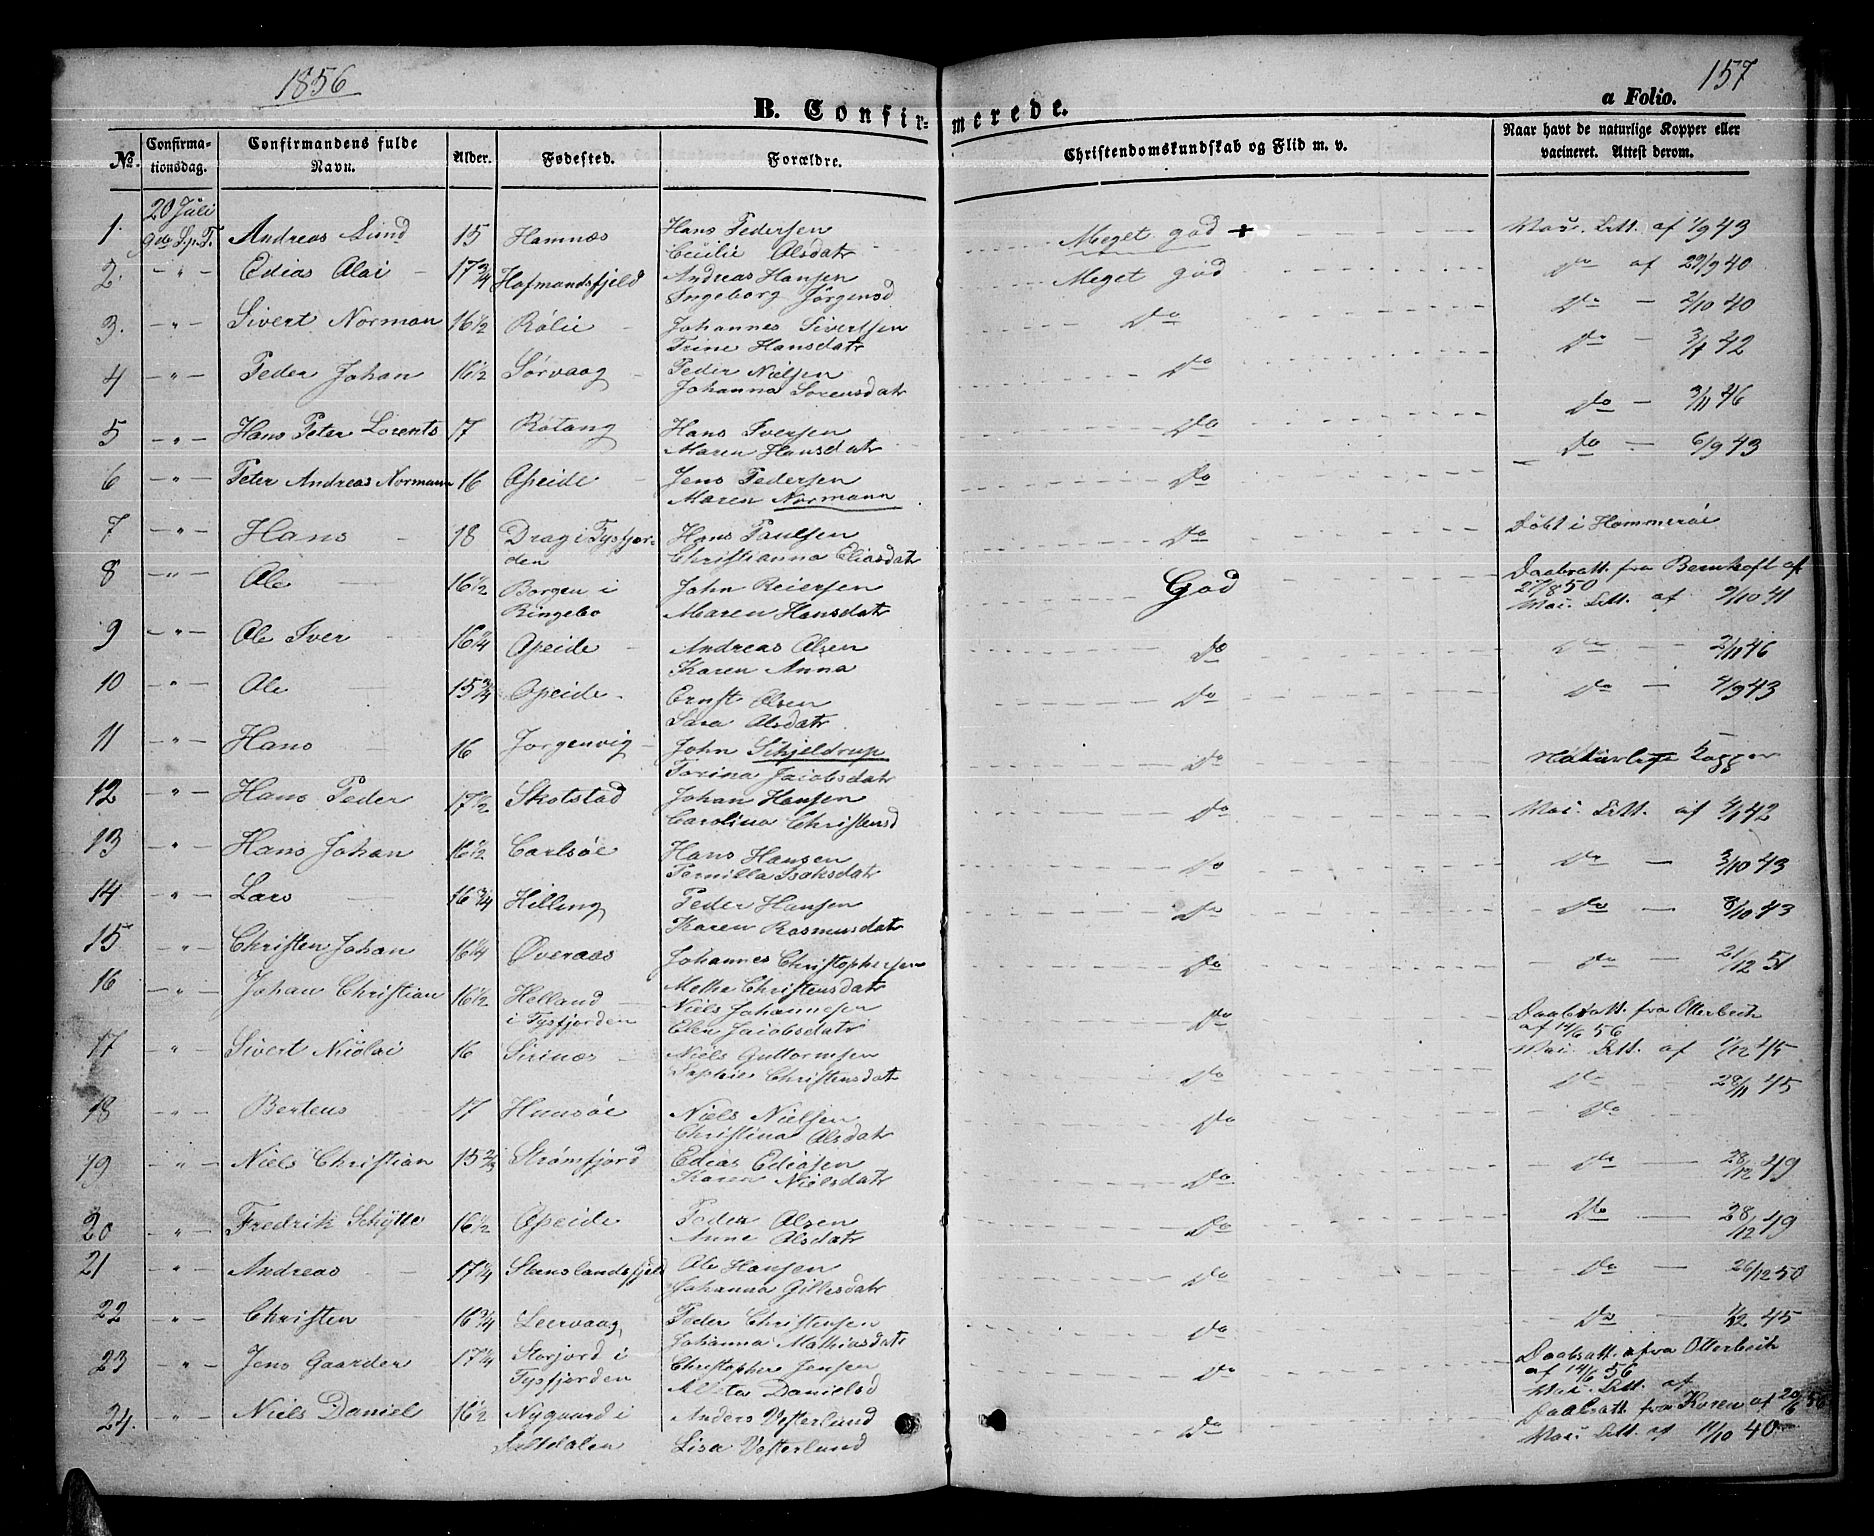 1856
157
B. Confirmerede.
a Folio.
No. Confirmationsdag. Confirmandens fulde Navn. Alder. Fødested. Forældre. Christendomskundskab og Flid m. v. Naar havt de naturlige Kopper eller vacineret. Attest derom.
20 Juli
1. 9de S.p.T. Andreas Lund 15 Hamnæs Hans Pedersen Meget god + Att. af 1/9 43
Cecilie Olsdatr
2. - " - Edias Olai 17 3/4 Hofmandsfjeld Andreas Hansen Meget god do af 29/9 40
Ingeborg Jörgensd
3. - " - Sivert Norman 16 1/2 Rölie Johannes Sivertsen Do Do - 2/10 40
Trine Hansdatr
4 - " - Peder Johan 16 1/2 Sørvaag Peder Nielsen Do Do - 42
Johanna Sørensdatr
5 - " - Hans Peter Lorents 17 Røtang Hans Iversen Do Do - 3/11 46
Maren Hansdatr
6 - " - Peter Andreas Normann 16 Opeide Jens Pedersen Do Do - 6/9 43
Maren Normann
7 - " - Hans 18 Drag i Tysfjorden Hans Paulsen Do Døbt i Hammerøe
Christianna Eliasdatr
8 - " - Ole 16 1/2 Borgen i Ringebo John Reiersen God Daabsatt. fra Bernhoft af 27/8 50
Maren Hansdatr Att. af 9/10 41
9 - " - Ole Iver 16 1/4 Opeide Andreas Olsen Do Do - 2/11 46
Karen Anna
10 - " - Ole 15 3/4 Opeide Ernst Olsen Do Do - 4/9 43
Sara Olsdatr
11 - " - Hans 16 Jorgenvig John Schjeldrup Do Naturlige Kopper
Torina Jacobsdatr
12 - " - Hans Peder 17 1/2 Skotstad Johan Hansen Do Att. af 42
Carolina Christensd
13 - " - Hans Johan 16 1/2 Carlsøe Hans Hansen Do Do - 3/10 43
Pernilla Isaksdatr
14 - " - Lars 16 3/4 Hilling Peder Hansen Do Do - 8/10 43
Karen Rasmusdatr
15 - " - Christen Johan 16 1/4 Øveraas Johannes Christophersen Do Do - 21/12 51
Methe Christensdatr
16 - " - Johan Christian 16 1/2 Helland i Tysfjorden Niels Johannesen Do Daabsatt. fra Otterbech af 14/6 56
Elen Jacobsdatr
17 - " - Sivert Nicolai 16 Niels Guttormsen Do Att. af 1/12 45
Sophie Christensdatr
18 - " - Berteus 17 Niels Nielsen Do Do 28/11 45
Christina Olsdatr Do
19 - " - Niels Christian 15 2/3 Strømfjord Edias Ediasen Do Do - 28/12 49
Karen Nielsdatr
20 - " - Fredrik Schytte 16 1/2 Opeide Peder Olsen Do Do - 28/12 49
Anne Olsdatr
21 - " - Andreas 17 1/4 Stenslandsfjeld Ole Hansen Do Do - 26/12 50
Johanna Gillesdatr
22 - " - Christen 16 3/4 Leervaag Peder Christensen Do Do - 1/12 45
Johanna Mathiasdatr
23 - " - Jens Gaarder 17 1/4 Storjord i Tysfjorden Christopher Jensen Do Daabsatt. fra Otterbech af 14/6 56
Danielsd Att. af
24. - " - Niels Daniel 16 1/2 Nygaard i Saltdalen Anders Vesterlund Do Daabsatt. fra Koren af 20/6 56
Lisa Vesterlund Att. af 11/10 40